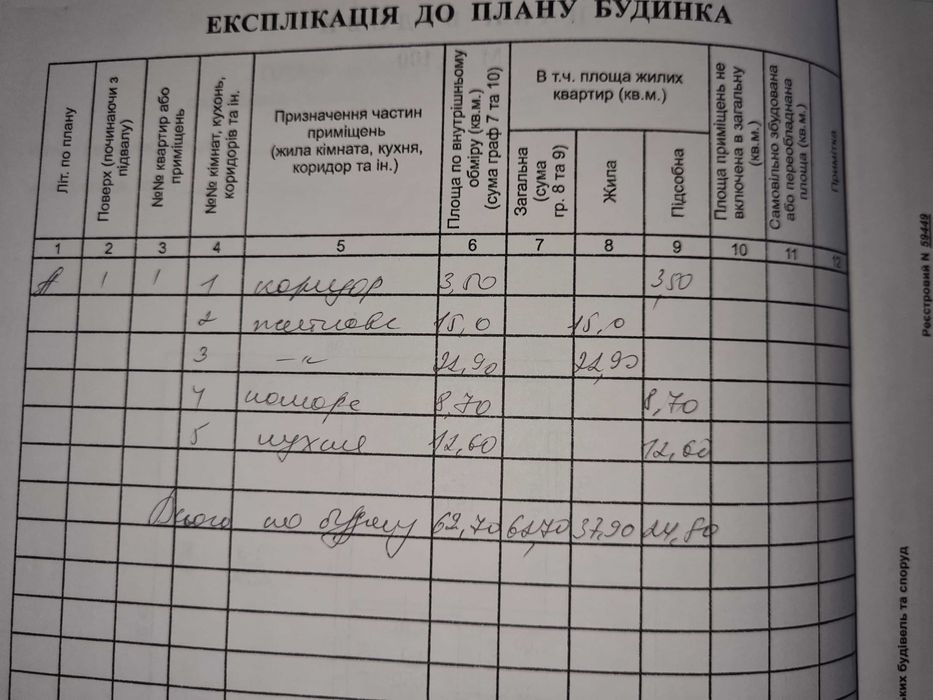 ЕКСПЛІКАЦІЯ ДО ПЛАНУ БУДИНКА
Літ. по плану
Поверх (починаючи з підвалу)
№№ квартир або приміщень
№№ кімнат, кухонь, коридорів та ін.
Призначення частин приміщень (жила кімната, кухня, коридор та ін.)
Площа по внутрішньому обміру (кв.м.) (сума граф 7 та 10)
В т.ч. площа жилих квартир (кв.м.)
Загальна (сума гр. 8 та 9)
Жила
Підсобна
Площа приміщень не включена в загальну (кв.м.)
Самовільно збудована або переобладнана площа (кв.м.)
Примітка
1 2 3 4 5 6 7 8 9 10 11 12
А 1 1 1 коридор 3,50 3,50
2 житлова 15,0 15,0
3 —"— 22,90 22,90
4 комора 8,70 8,70
5 кухня 12,60 12,60
Всього по будинку 62,70 62,70 37,90 24,80
Реєстровий N 59449
ких будівель та споруд